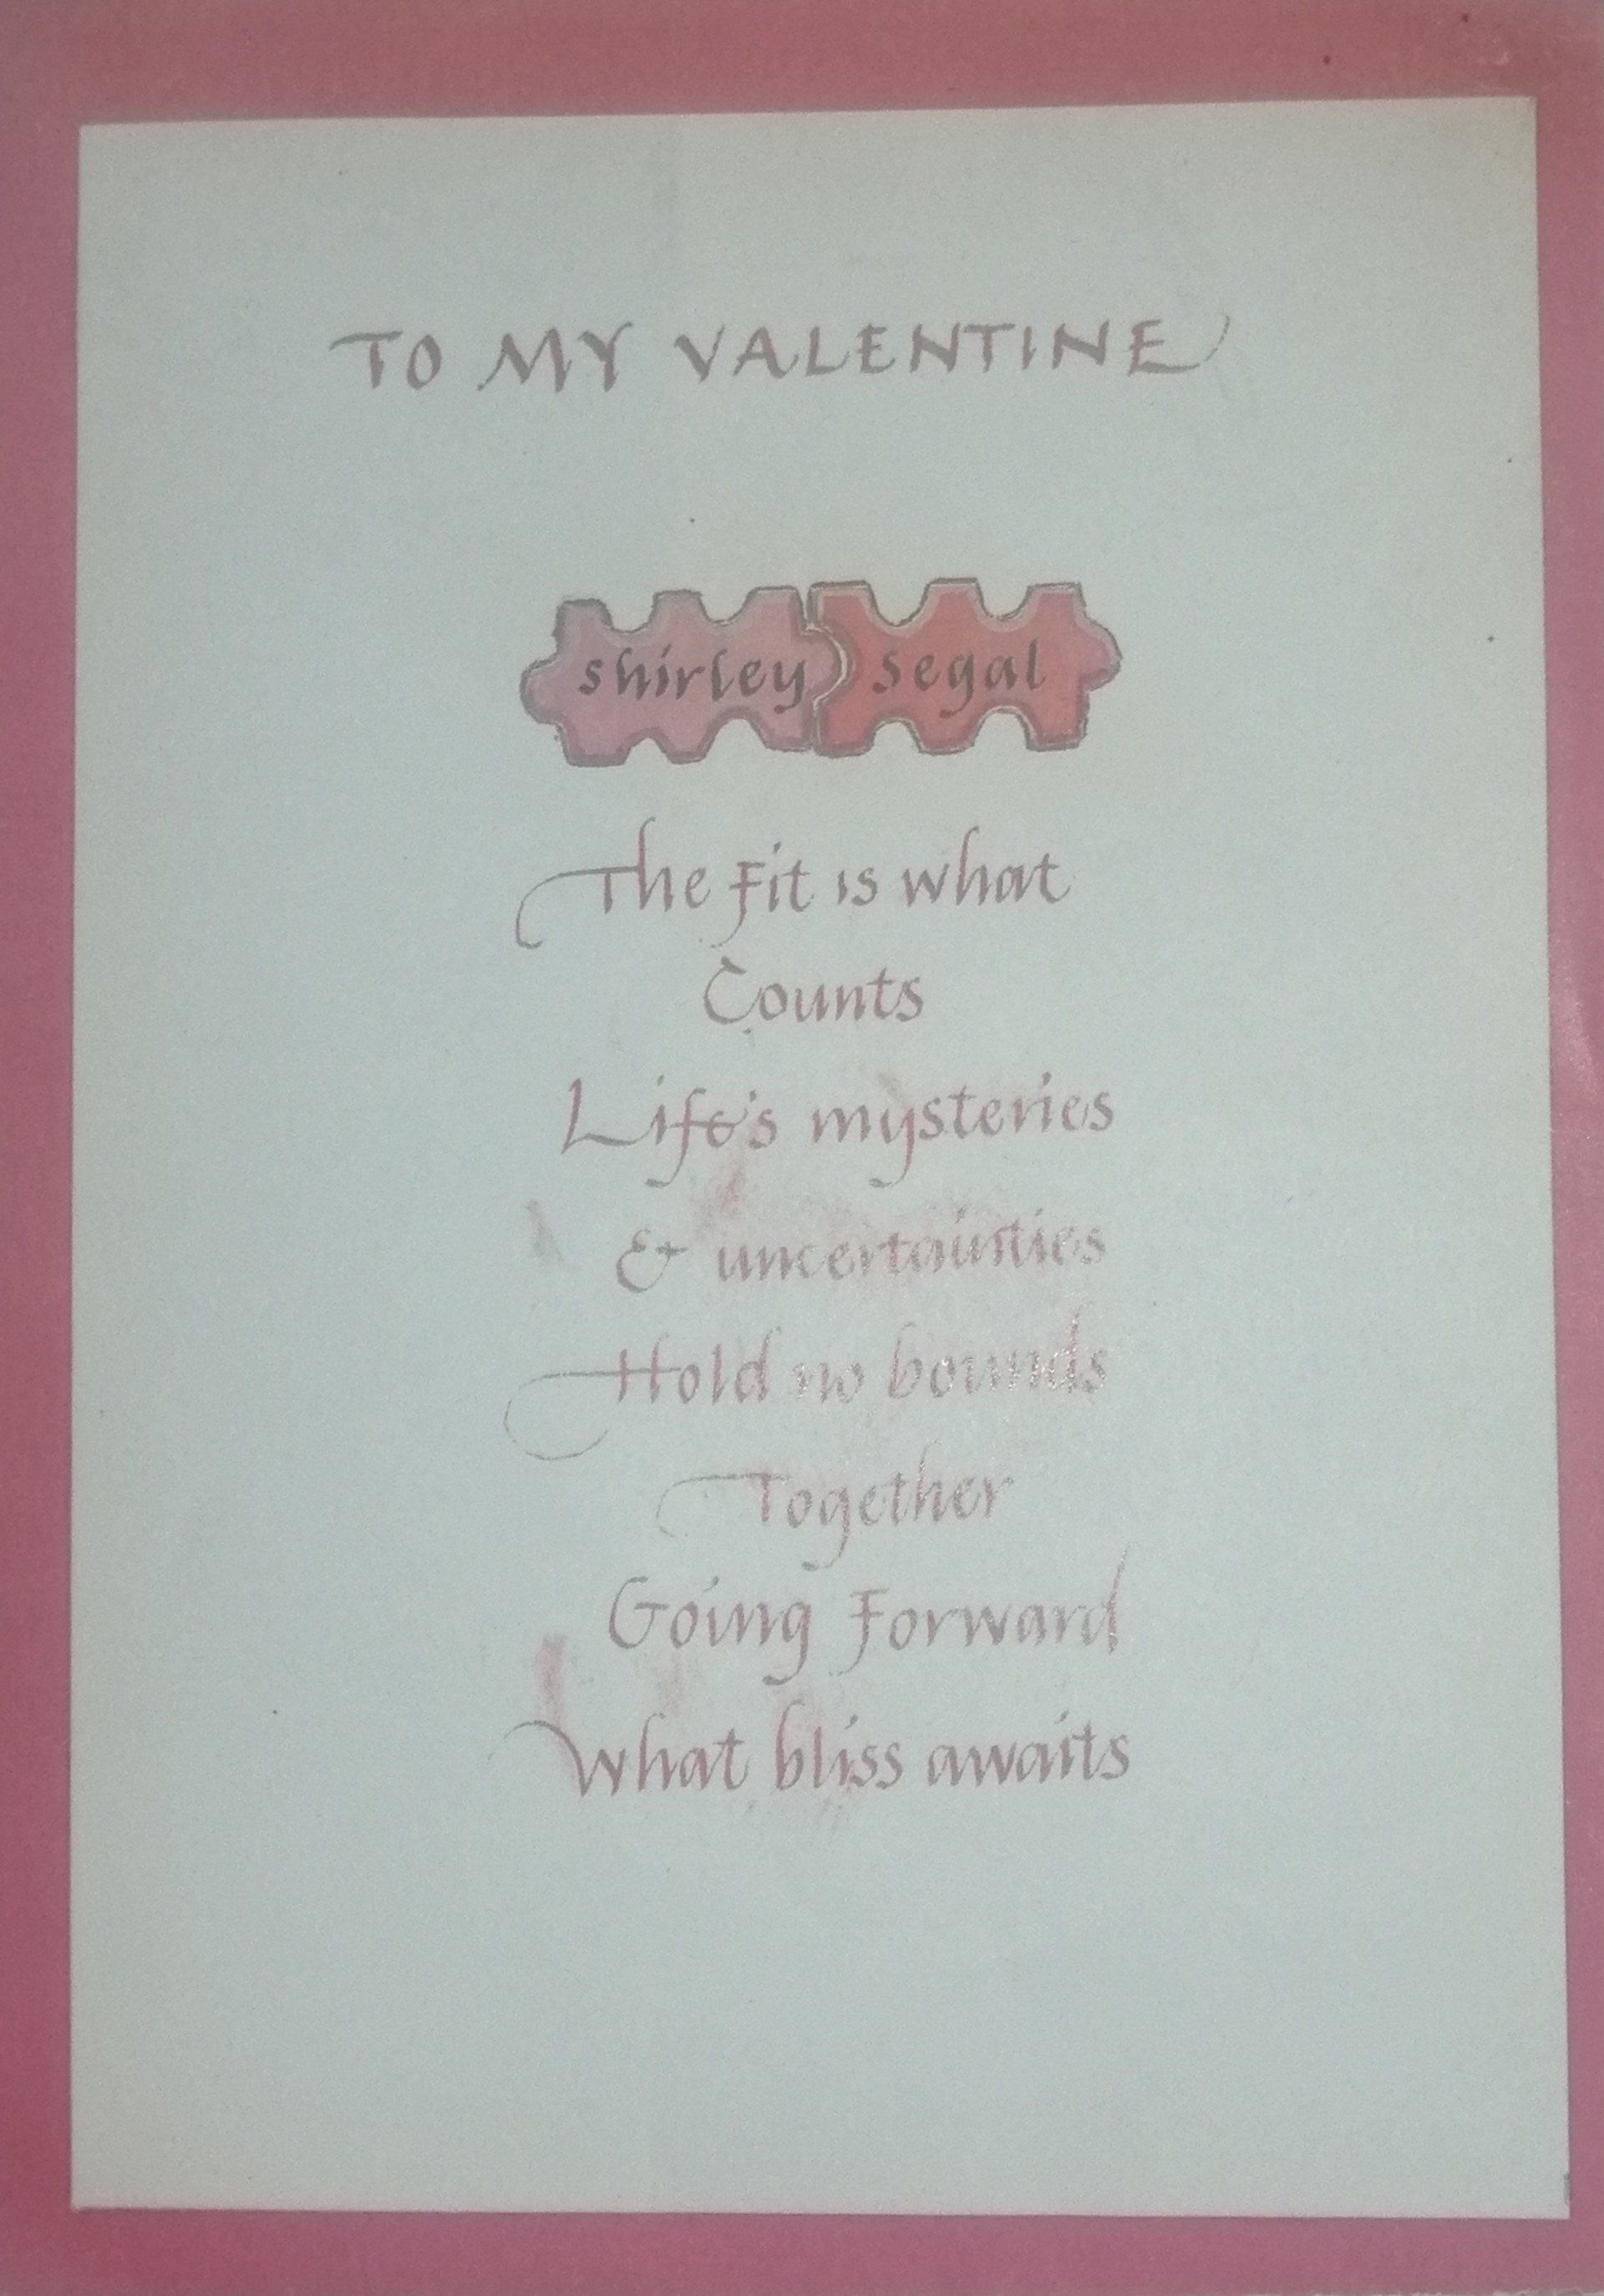 TO MY VALENTINE
shirley segal
The Fit is what
Counts
Life's mysteries
& uncertainties
Hold no bounds
Together
Going Forward
What bliss awaits